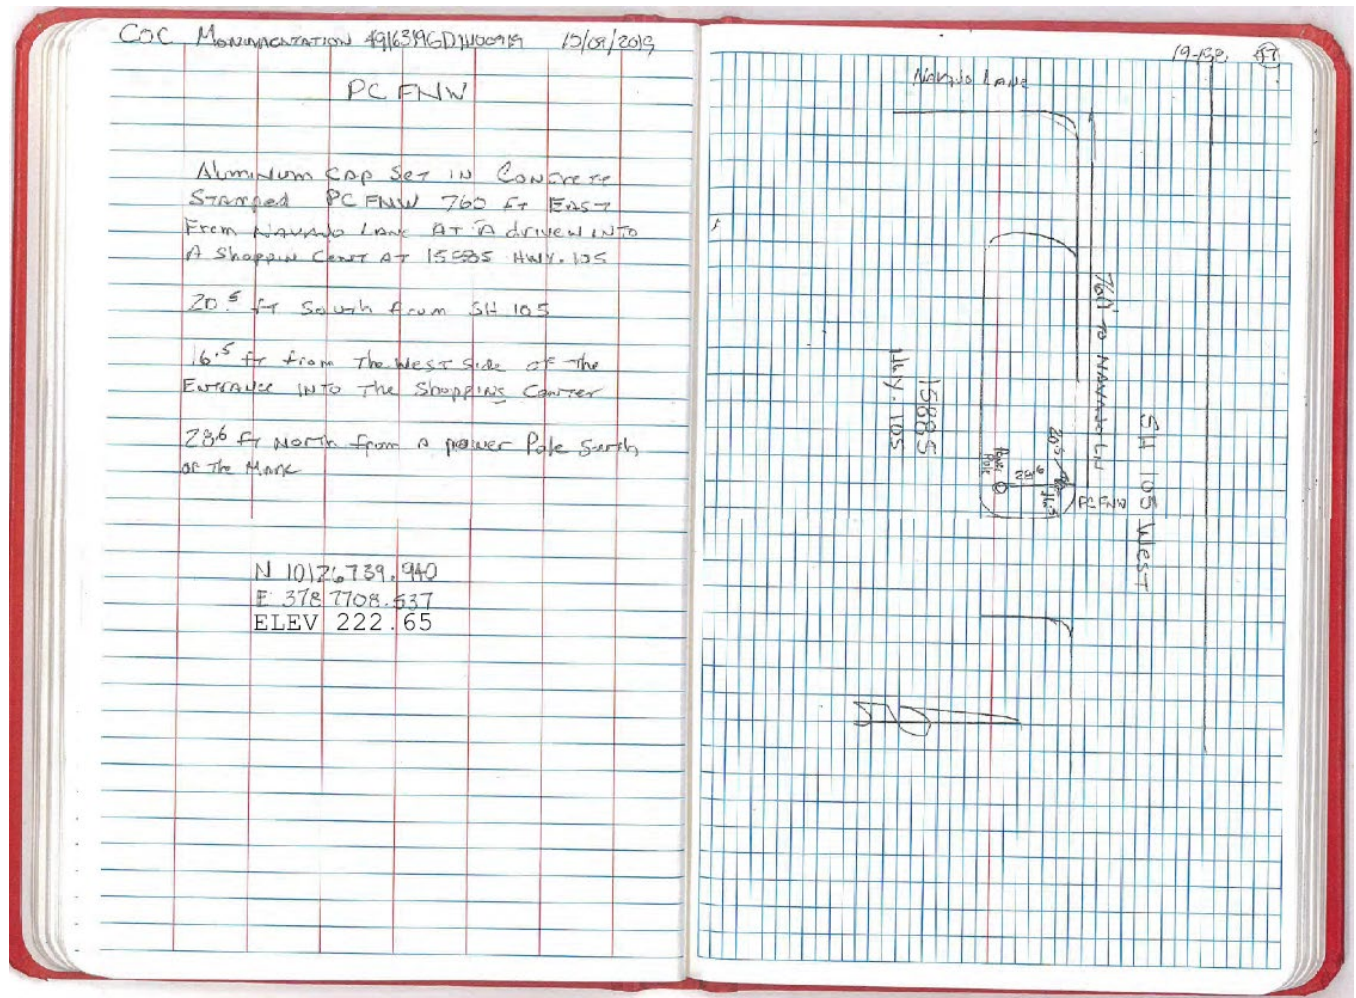 COC Monumentation 4916319GDW100919 10/09/2019
PC FNW
Aluminum Cap Set in Concrete
Stamped PC FNW 760 ft East
From Navajo Lane At A drivew into
A Shoppin Cent At 15885 Hwy. 105
20.5 ft South from SH 105
16.5 ft from The West Side of The
Entrance into The Shopping Center
28.6 ft North from a power Pole South
of The Mark
N 10126739.940
E 3787708.537
ELEV 222.65
19-158
Navajo Lane
760' to Navajo Ln
15885
Hwy. 105
SH 105 West
Power
Pole
28.6
20.5
16.5
PC FNW